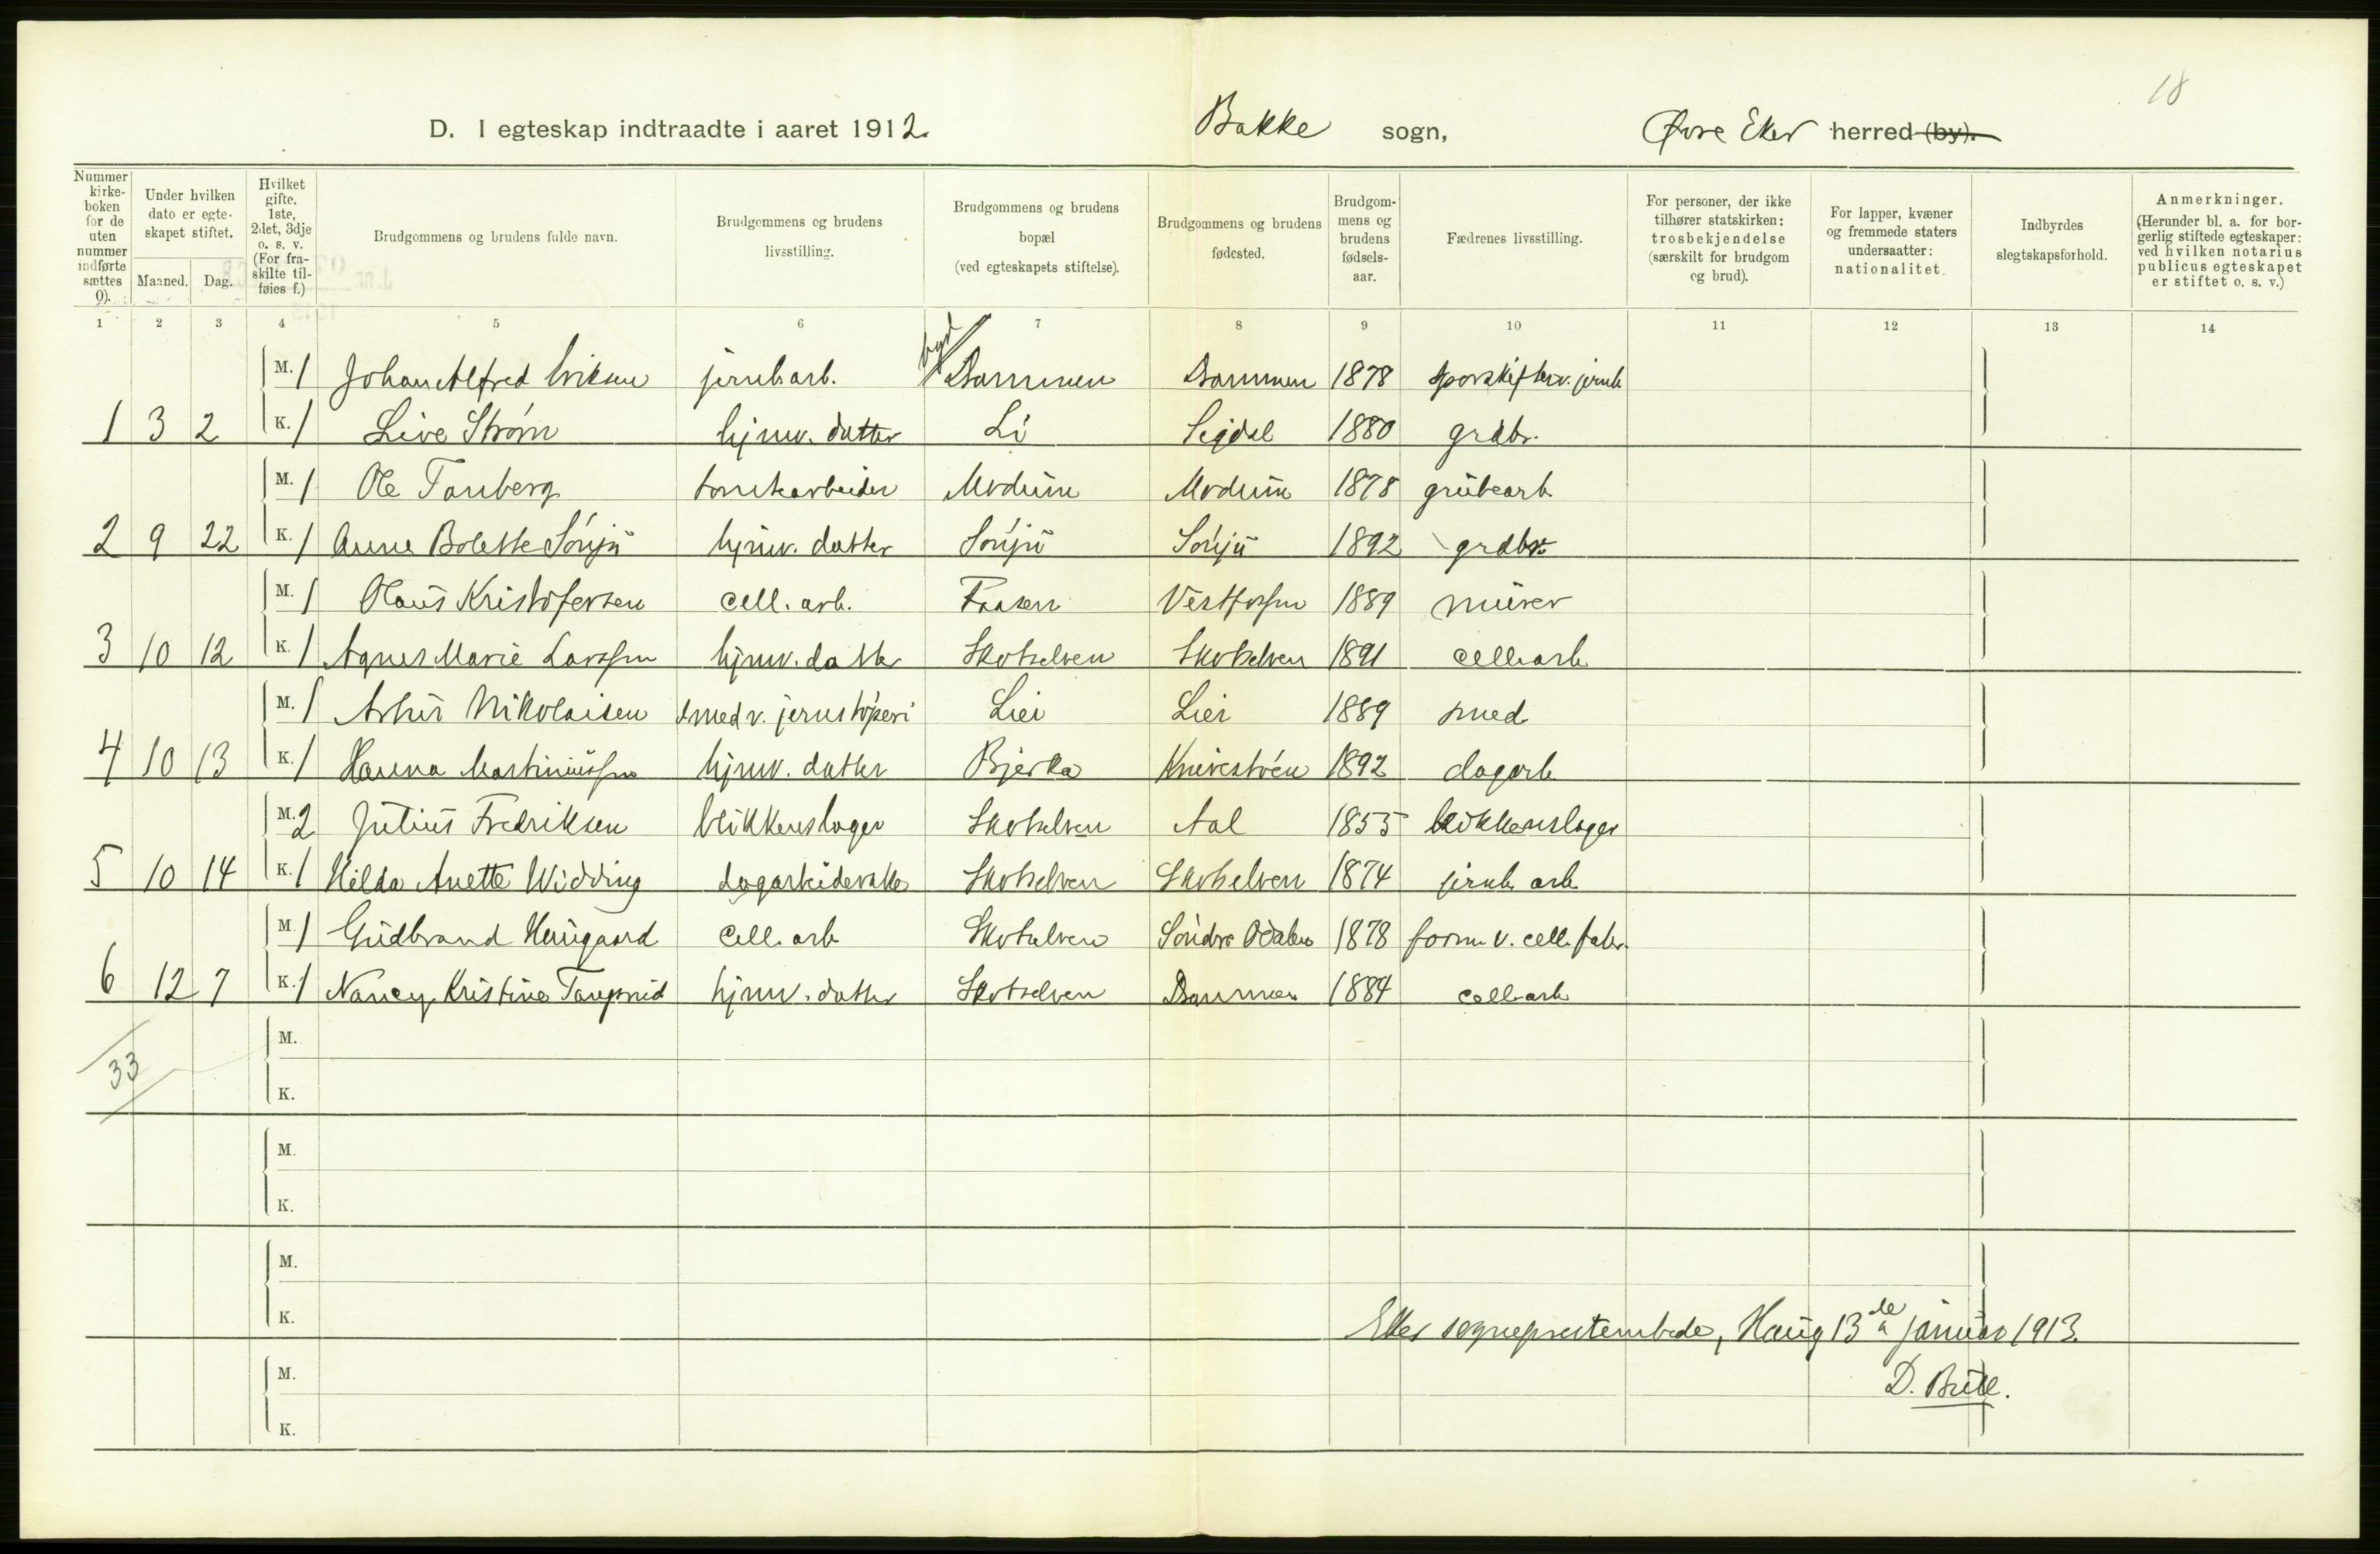 18
D. I egteskap indtraadte i aaret 1912. Bakke sogn, Øvre Eker herred (by).
Nummer kirkeboken for de uten nummer indførte sættes 0).
Under hvilken dato er egteskapet stiftet.
Maaned. Dag.
Hvilket gifte. 1ste, 2det, 3dje o. s. v. (For fraskilte tilføies f.)
Brudgommens og brudens fulde navn.
Brudgommens og brudens livsstilling.
Brudgommens og brudens bopæl (ved egteskapets stiftelse).
Brudgommens og brudens fødested.
Brudgommens og brudens fødselsaar.
Fædrenes livsstilling.
For personer, der ikke tilhører statskirken: trosbekjendelse (særskilt for brudgom og brud).
For lapper, kvæner og fremmede staters undersaatter: nationalitet.
Indbyrdes slegtskapsforhold.
Anmerkninger. (Herunder bl. a. for borgerlig stiftede egteskaper: ved hvilken notarius publicus egteskapet er stiftet o. s. v.)
1 2 3 4 5 6 7 8 9 10 11 12 13 14
M. 1 Johan Alfred Eriksen jernb.arb. Drammen Drammen 1878 sporskifterv. jernb
1 3 2 K. 1 Live Strøm hjemv. datter Li Sigdal 1880 grdbr.
M. 1 Ole Tanberg tomtearbeider Modum Modum 1878 grubearb.
2 9 22 K. 1 Anne Bolette Sönju hjemv. datter Sönju Sönju 1892 grdbr.
M. 1 Olaus Kristofersen cell. arb. Fossen Vestfossen 1889 murer
3 10 12 K. 1 Agnes Marie Larssen hjemv. datter Skotselven Skotselven 1891 cell.arb.
M. 1 Artur Nikolaisen smed v. jernstöperi Lier Lier 1889 smed
4 10 13 K. 1 Hanna Martiniussen hjemv. datter Bjerka 1892 dagarb.
M. 2 Julius Fredriksen blikkenslager Skotselven Aal 1855 blikkenslager
5 10 14 K. 1 Hilda Anette Widding Skotselven Skotselven 1874 jernb. arb.
M. 1 Gudbrand Haugaard Cell. arb. Skotselven Söndre Odalen 1878 form. v. cell. fabr.
6 12 7 K. 1 Nancy Kristine hjemv. datter Skotselven Drammen 1884 cell.arb.
33
M.
K.
M.
K.
M.
K.
Eker sogneprestembede, Haug 13de januar 1913.
M.
D. Bull.
K.